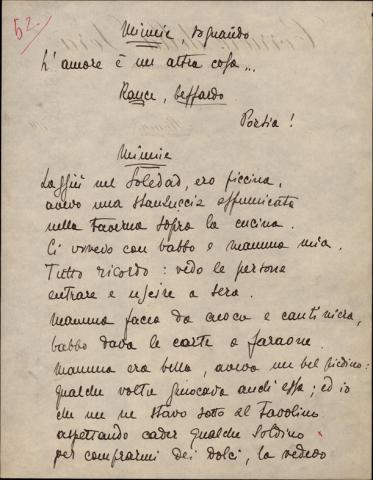 52.
Minnie, sognando
L'amore è un altra cosa...
Rance, beffardo
Poesia!
Minnie
Laggiù nel Soledad, ero piccina,
avevo una stanzuccia affumicata
nella taverna sopra la cucina.
Ci vivevo con babbo e mamma mia.
Tutto ricordo: vedo le persone
entrare e uscire a sera.
Mamma facea da cuoca e cantiniera,
babbo dava le carte a faraone.
Mamma era bella, aveva un bel piedino:
qualche volta giocava anch'essa; ed io
che me ne stavo sotto al tavolino
aspettando cader qualche soldino
per comprarmi dei dolci, la vedevo